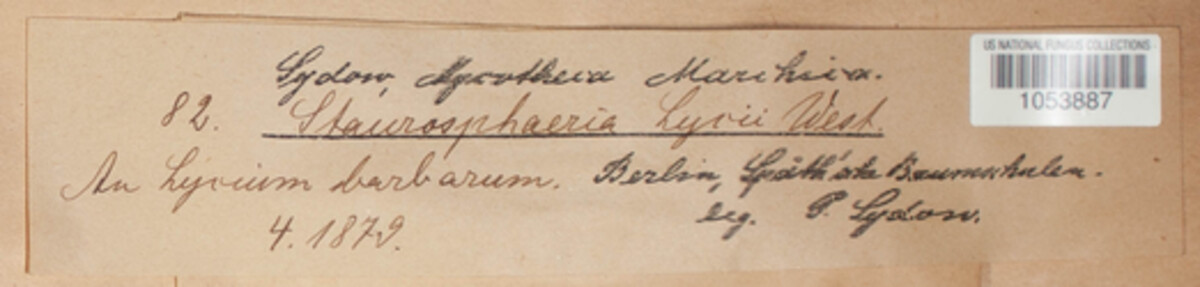 Sydow, Mycotheca Marchica.
82. Staurosphaeria Lycii West.
An Lycium barbarum. Berlin, Späth'sche Baumschulen.
4. 1879. leg. P. Sydow.
US NATIONAL FUNGUS COLLECTIONS
1053887